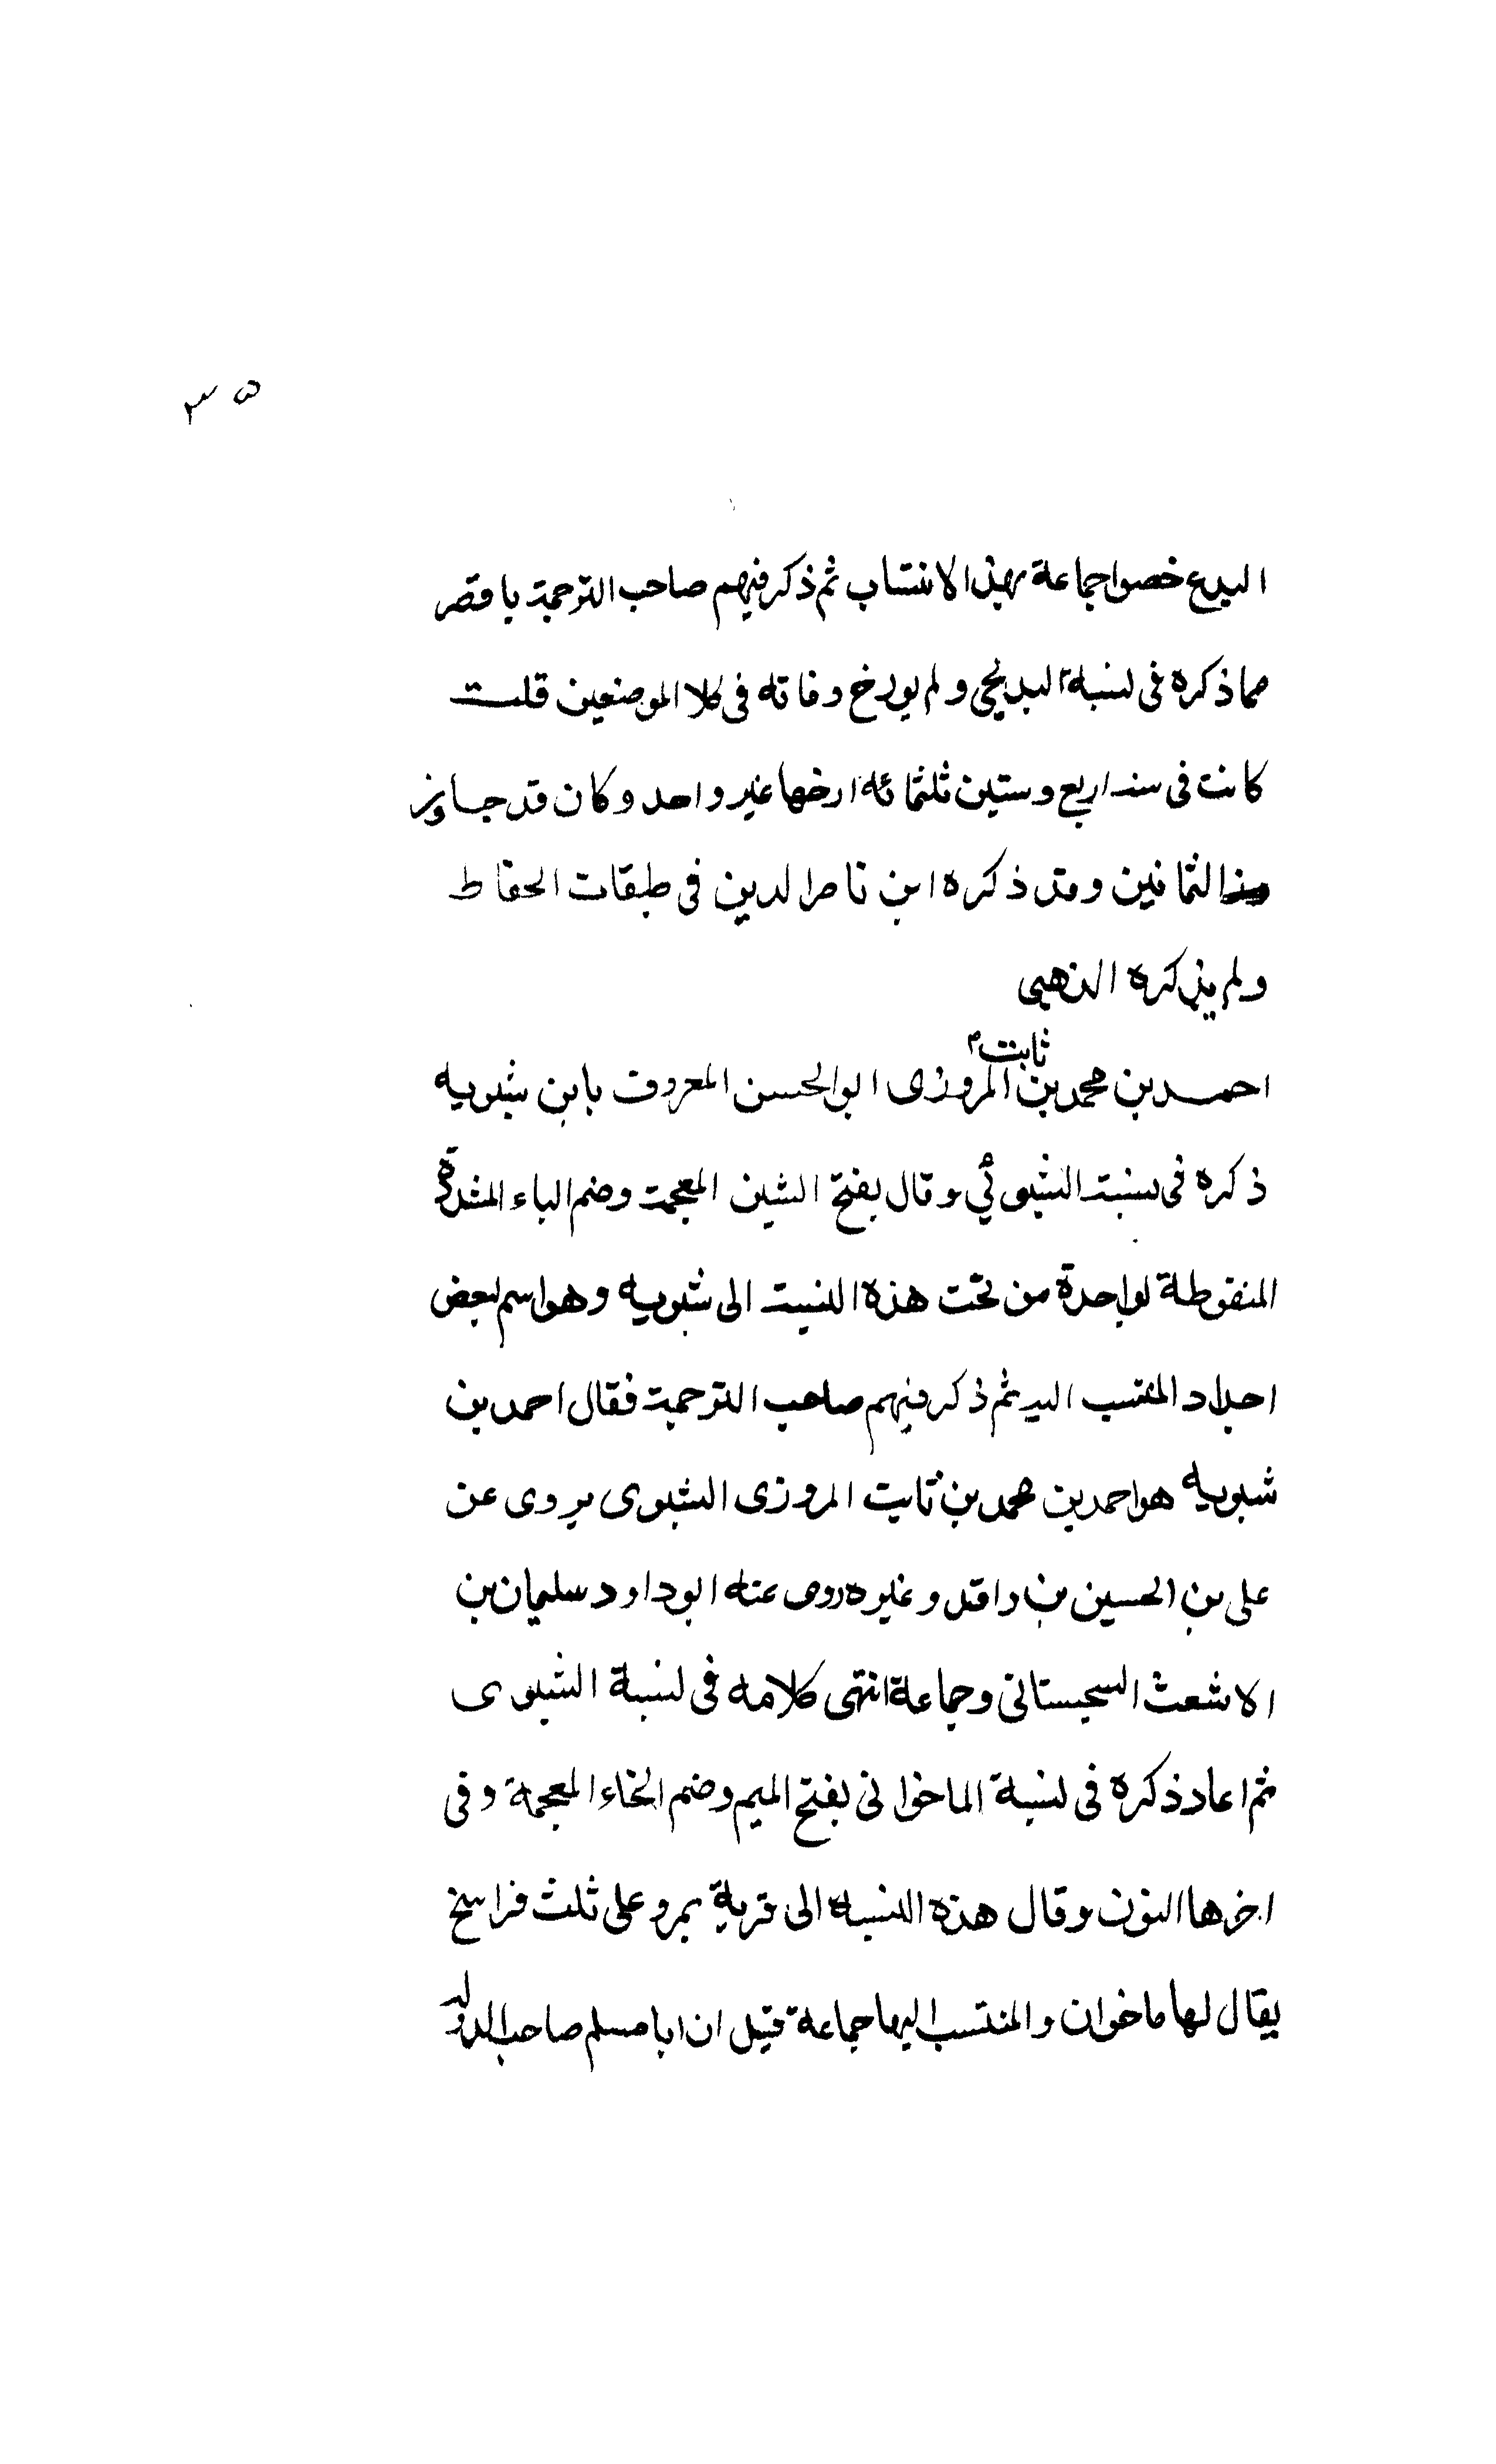 ٣٥
البديع خصوا جماعة بهذا الانتساب ثم ذكر فيهم صاحب الترجمة باقصر
مما ذكره فى نسبة البديحى ولم يورخ وفاته فى كلا الموضعين قلت
كانت فى سنة اربع وستين ثلثمائة ارخها غير واحد وكان قد جاوز
الثمانين وقد ذكره ابن ناصر الدين فى طبقات الحفاظ
ولم يذكره الذهبى
احمد بن محمد بن ثابت المروزى ابو الحسن المعروف بابن شبويه
ذكره فى نسبت الشبوئي وقال بفتح الشين المعجمة وضم الباء المشددة
المنقوطة بواحدة من تحت هذه النسبت الى شبويه وهو اسم لبعض
اجداد المنتسب اليه ثم ذكر فيهم صاحب الترجمة فقال احمد بن
شبويه هو احمد بن محمد بن ثابت المروزى الشبوى يروى عن
على بن الحسين بن واقد وغيره روى عنه ابو داود سليمان بن
الاشعث السجستانى وجماعة انتهى كلامه فى نسبة الشبوى
ثم اعاد ذكره فى نسبة الماخوانى بفتح الميم وضم الخاء المعجمة وفى
اخرها النون وقال هذه النسبة الى قرية بمرو على ثلث فراسخ
يقال لها ماخوان والمنتسب اليها جماعة قيل ان ابا مسلم صاحب الدولة